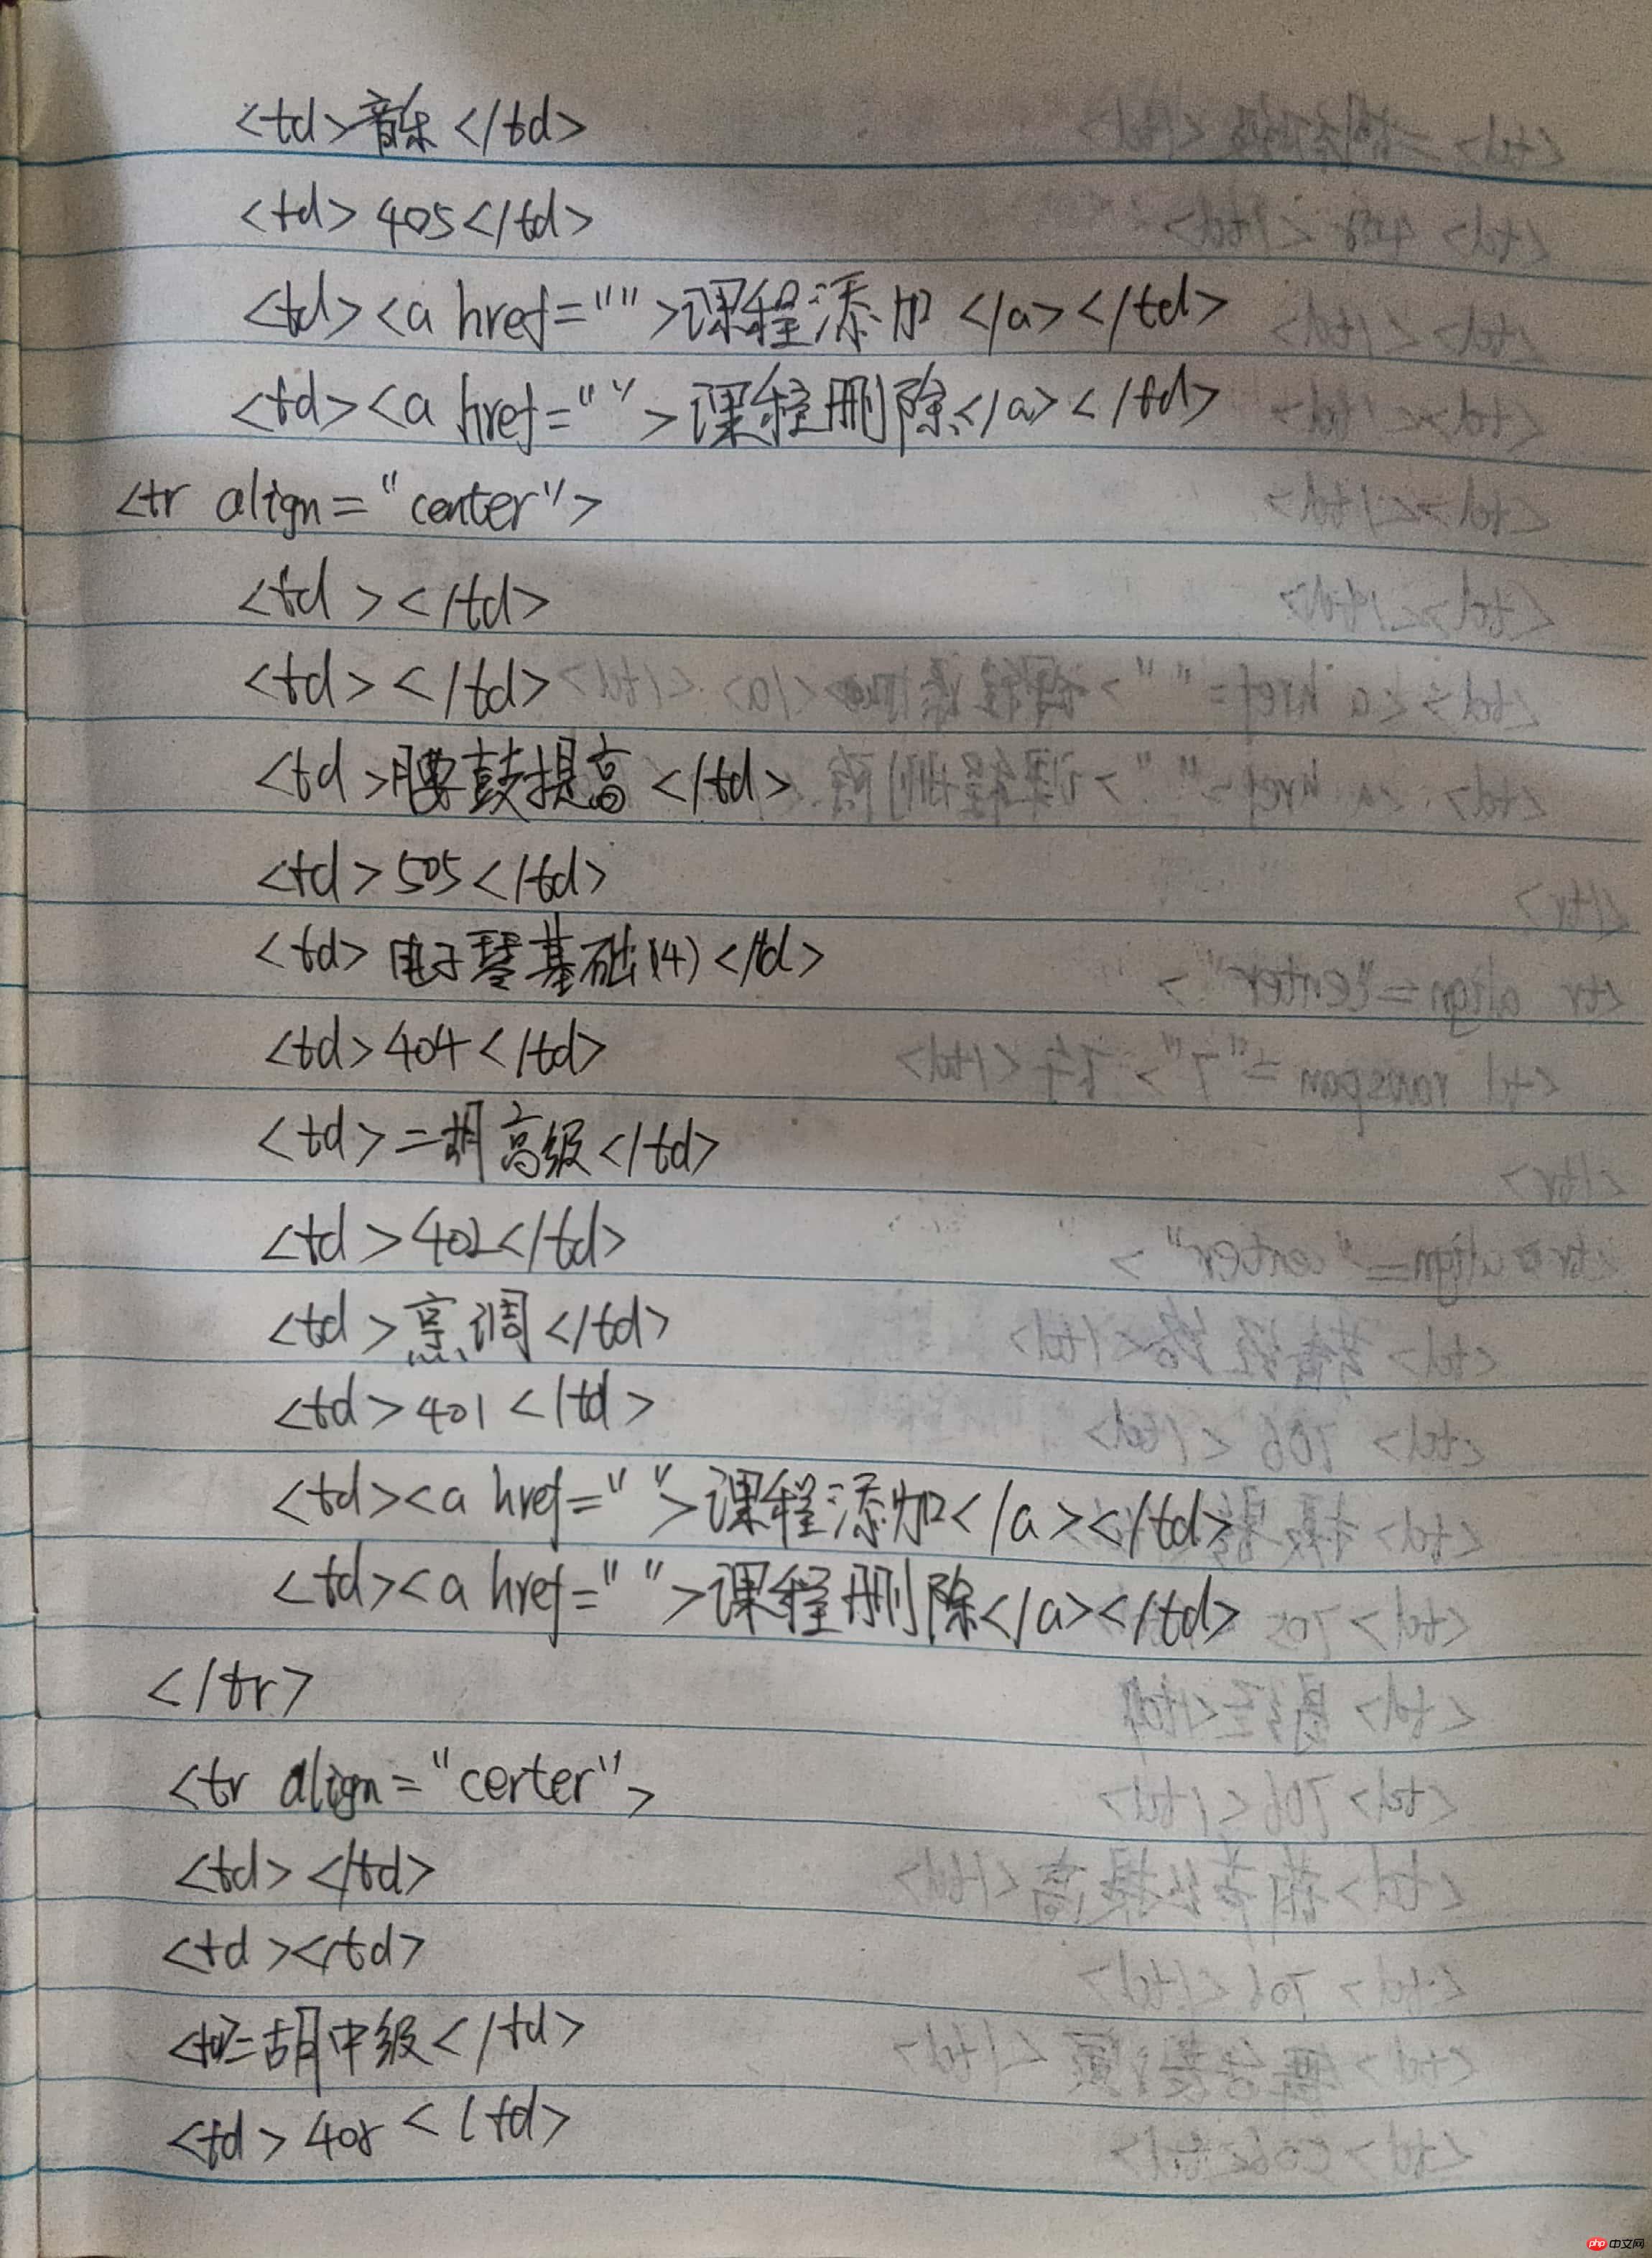 <td>音乐</td>
<td>405</td>
<td><a href="">课程添加</a></td>
<td><a href="">课程删除</a></td>
<tr align="center">
<td></td>
<td></td>
<td>腰鼓提高</td>
<td>505</td>
<td>电子琴基础(4)</td>
<td>404</td>
<td>二胡高级</td>
<td>402</td>
<td>烹调</td>
<td>401</td>
<td><a href="">课程添加</a></td>
<td><a href="">课程删除</a></td>
</tr>
<tr align="certer">
<td></td>
<td></td>
<td>二胡中级</td>
<td>408</td>
php 中文网